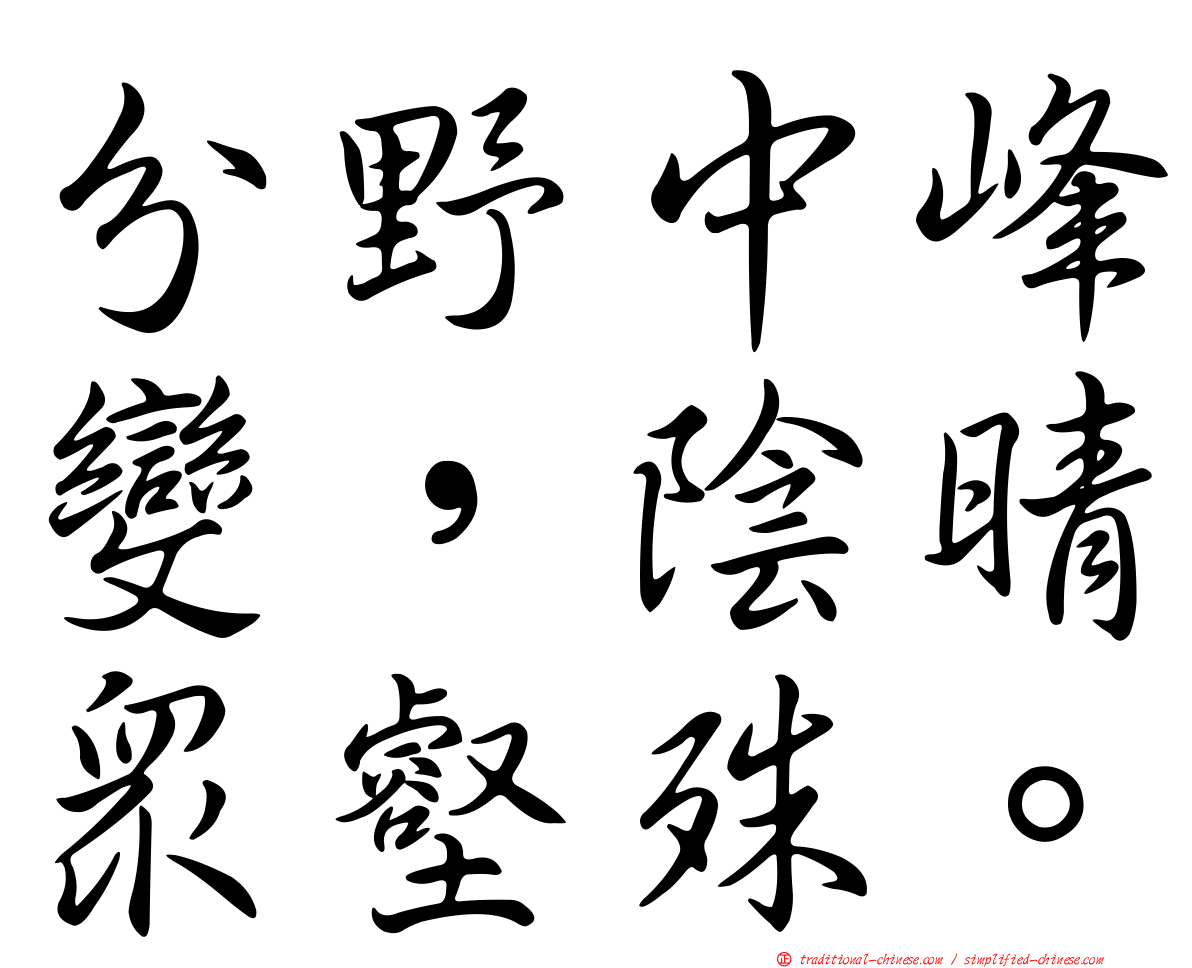 分野中峰
變，陰晴
眾壑殊。
㊣ traditional-chinese.com / simplified-chinese.com